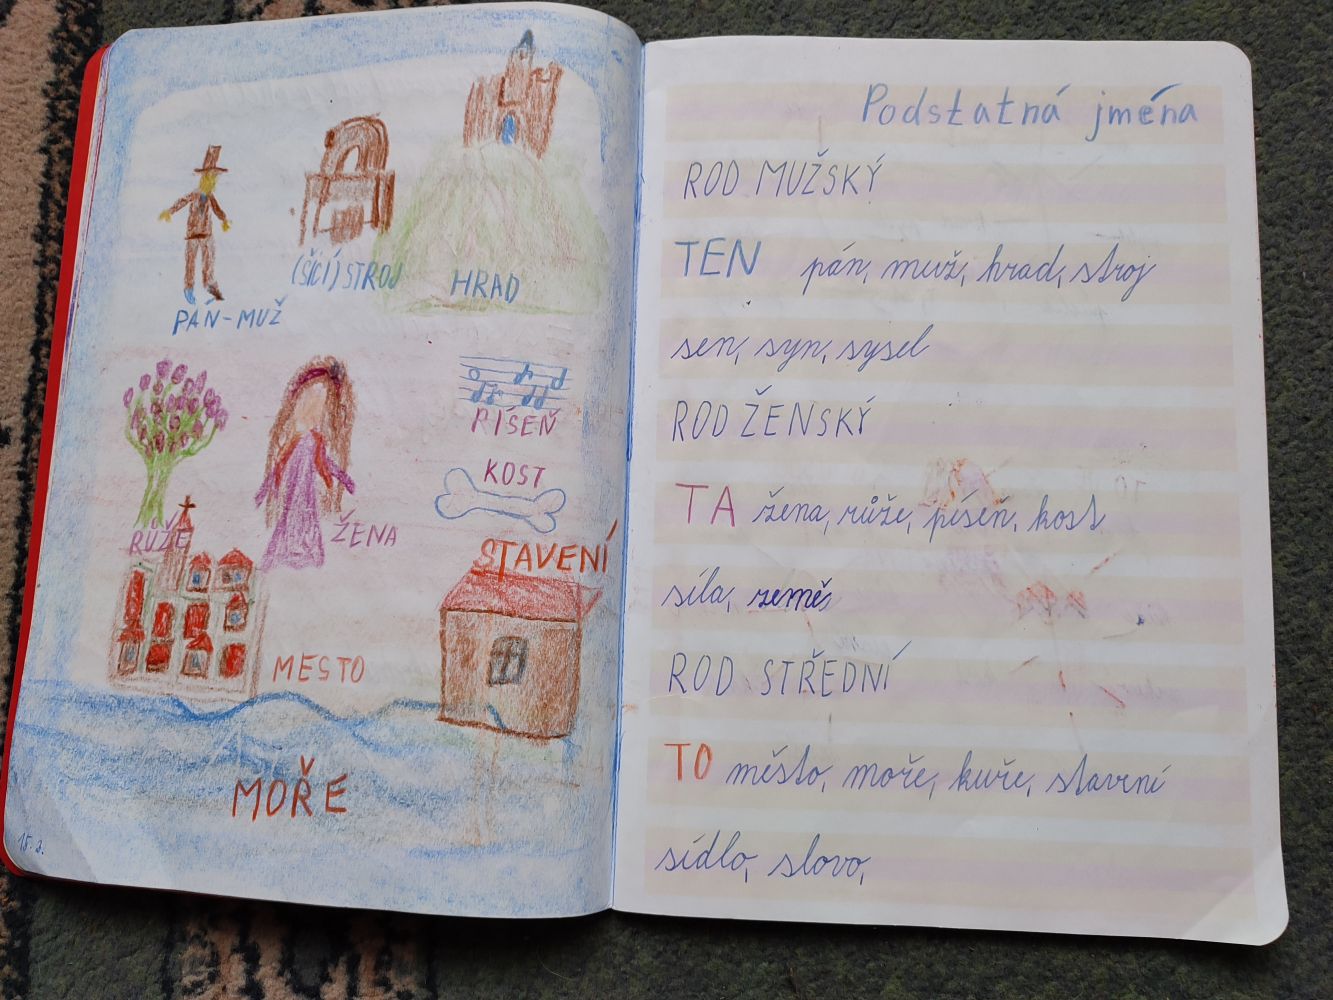 (ŠÍCÍ) STROJ
HRAD
PÁN-MUŽ
PÍSEŇ
KOST
RŮŽE
ŽENA
STAVENÍ
MESTO
MOŘE
15.2.
Podstatná jména
ROD MUŽSKÝ
TEN pán, muž, hrad, stroj
sen, syn, sysel
ROD ŽENSKÝ
TA žena, růže, píseň, kost
síla, země,
ROD STŘEDNÍ
TO město, moře, kuře, stavení
sídlo, slovo,